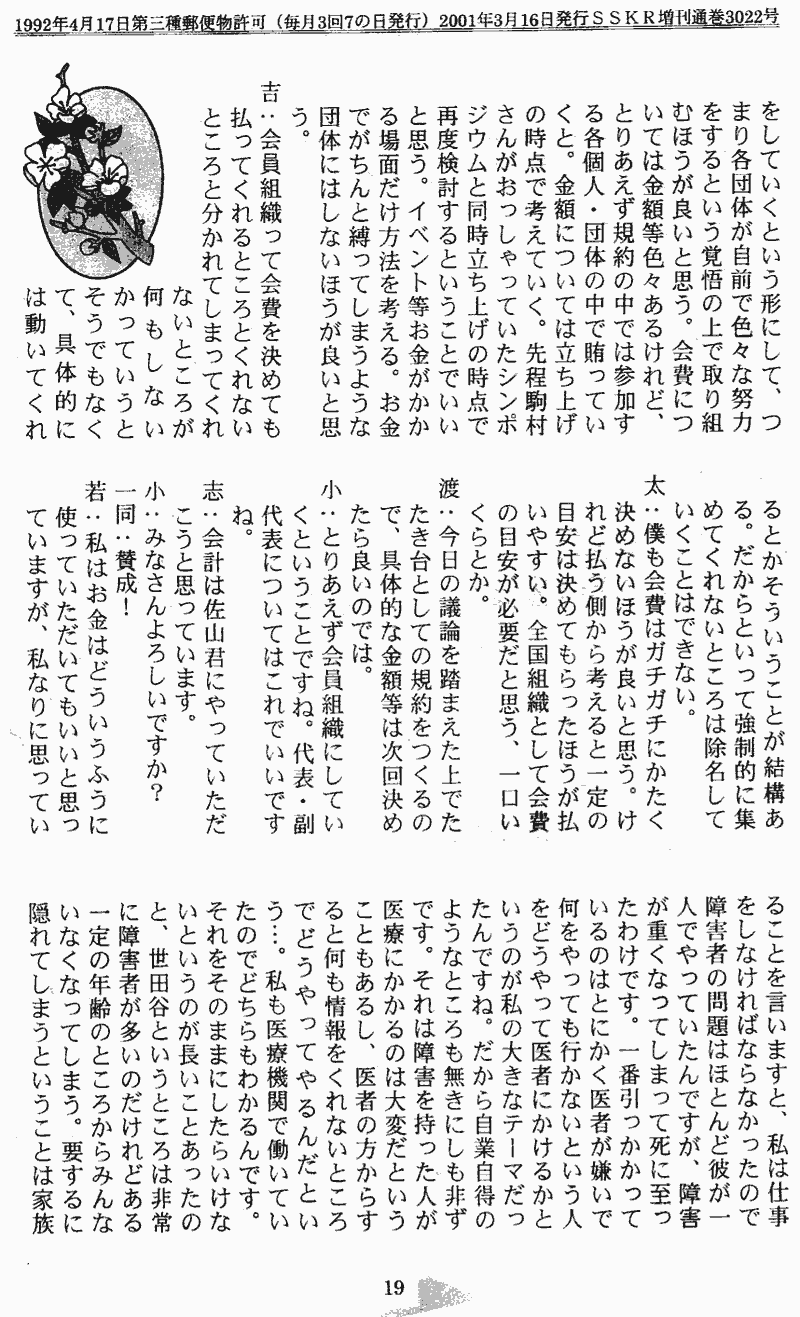 1992年4月17日第三種郵便物許可（毎月3回7の日発行）2001年3月16日発行ＳＳＫＲ増刊通巻3022号
をしていくという形にして、つ
まり各団体が自前で色々な努力
をするという覚悟の上で取り組
むほうが良いと思う。会費につ
いては金額等色々あるけれど、
とりあえず規約の中では参加す
る各個人・団体の中で賄ってい
くと。金額については立ち上げ
の時点で考えていく。先程駒村
さんがおっしゃっていたシンポ
ジウムと同時立ち上げの時点で
再度検討するということでいい
と思う。イベント等お金がかか
る場面だけ方法を考える。お金
でがちんと縛ってしまうような
団体にはしないほうが良いと思
う。
吉：会員組織って会費を決めても
払ってくれるところとくれない
ところと分かれてしまってくれ
ないところが
何もしない
かっていうと
そうでもなく
て、具体的に
は動いてくれ
るとかそういうことが結構あ
る。だからといって強制的に集
めてくれないところは除名して
いくことはできない。
太：僕も会費はガチガチにかたく
決めないほうが良いと思う。け
れど払う側から考えると一定の
目安は決めてもらったほうが払
いやすい。全国組織として会費
の目安が必要だと思う、一口い
くらとか。
渡：今日の議論を踏まえた上でた
たき台としての規約をつくるの
で、具体的な金額等は次回決め
たら良いのでは。
小：とりあえず会員組織にしてい
くということですね。代表・副
代表についてはこれでいいです
ね。
志：会計は佐山君にやっていただ
こうと思っています。
小：みなさんよろしいですか？
一同：賛成！
若：私はお金はどういうふうに
使っていただいてもいいと思っ
ていますが、私なりに思ってい
ることを言いますと、私は仕事
をしなければならなかったので
障害者の問題はほとんど彼が一
人でやっていたんですが、障害
が重くなってしまって死に至っ
たわけです。一番引っかかって
いるのはとにかく医者が嫌いで
何をやっても行かないという人
をどうやって医者にかけるかと
いうのが私の大きなテーマだっ
たんですね。だから自業自得の
ようなところも無きにしも非ず
です。それは障害を持った人が
医療にかかるのは大変だという
こともあるし、医者の方からす
ると何も情報をくれないところ
でどうやってやるんだとい
う…。私も医療機関で働いてい
たのでどちらもわかるんです。
それをそのままにしたらいけな
いというのが長いことあったの
と、世田谷というところは非常
に障害者が多いのだけれどある
一定の年齢のところからみんな
いなくなってしまう。要するに
隠れてしまうということは家族
19